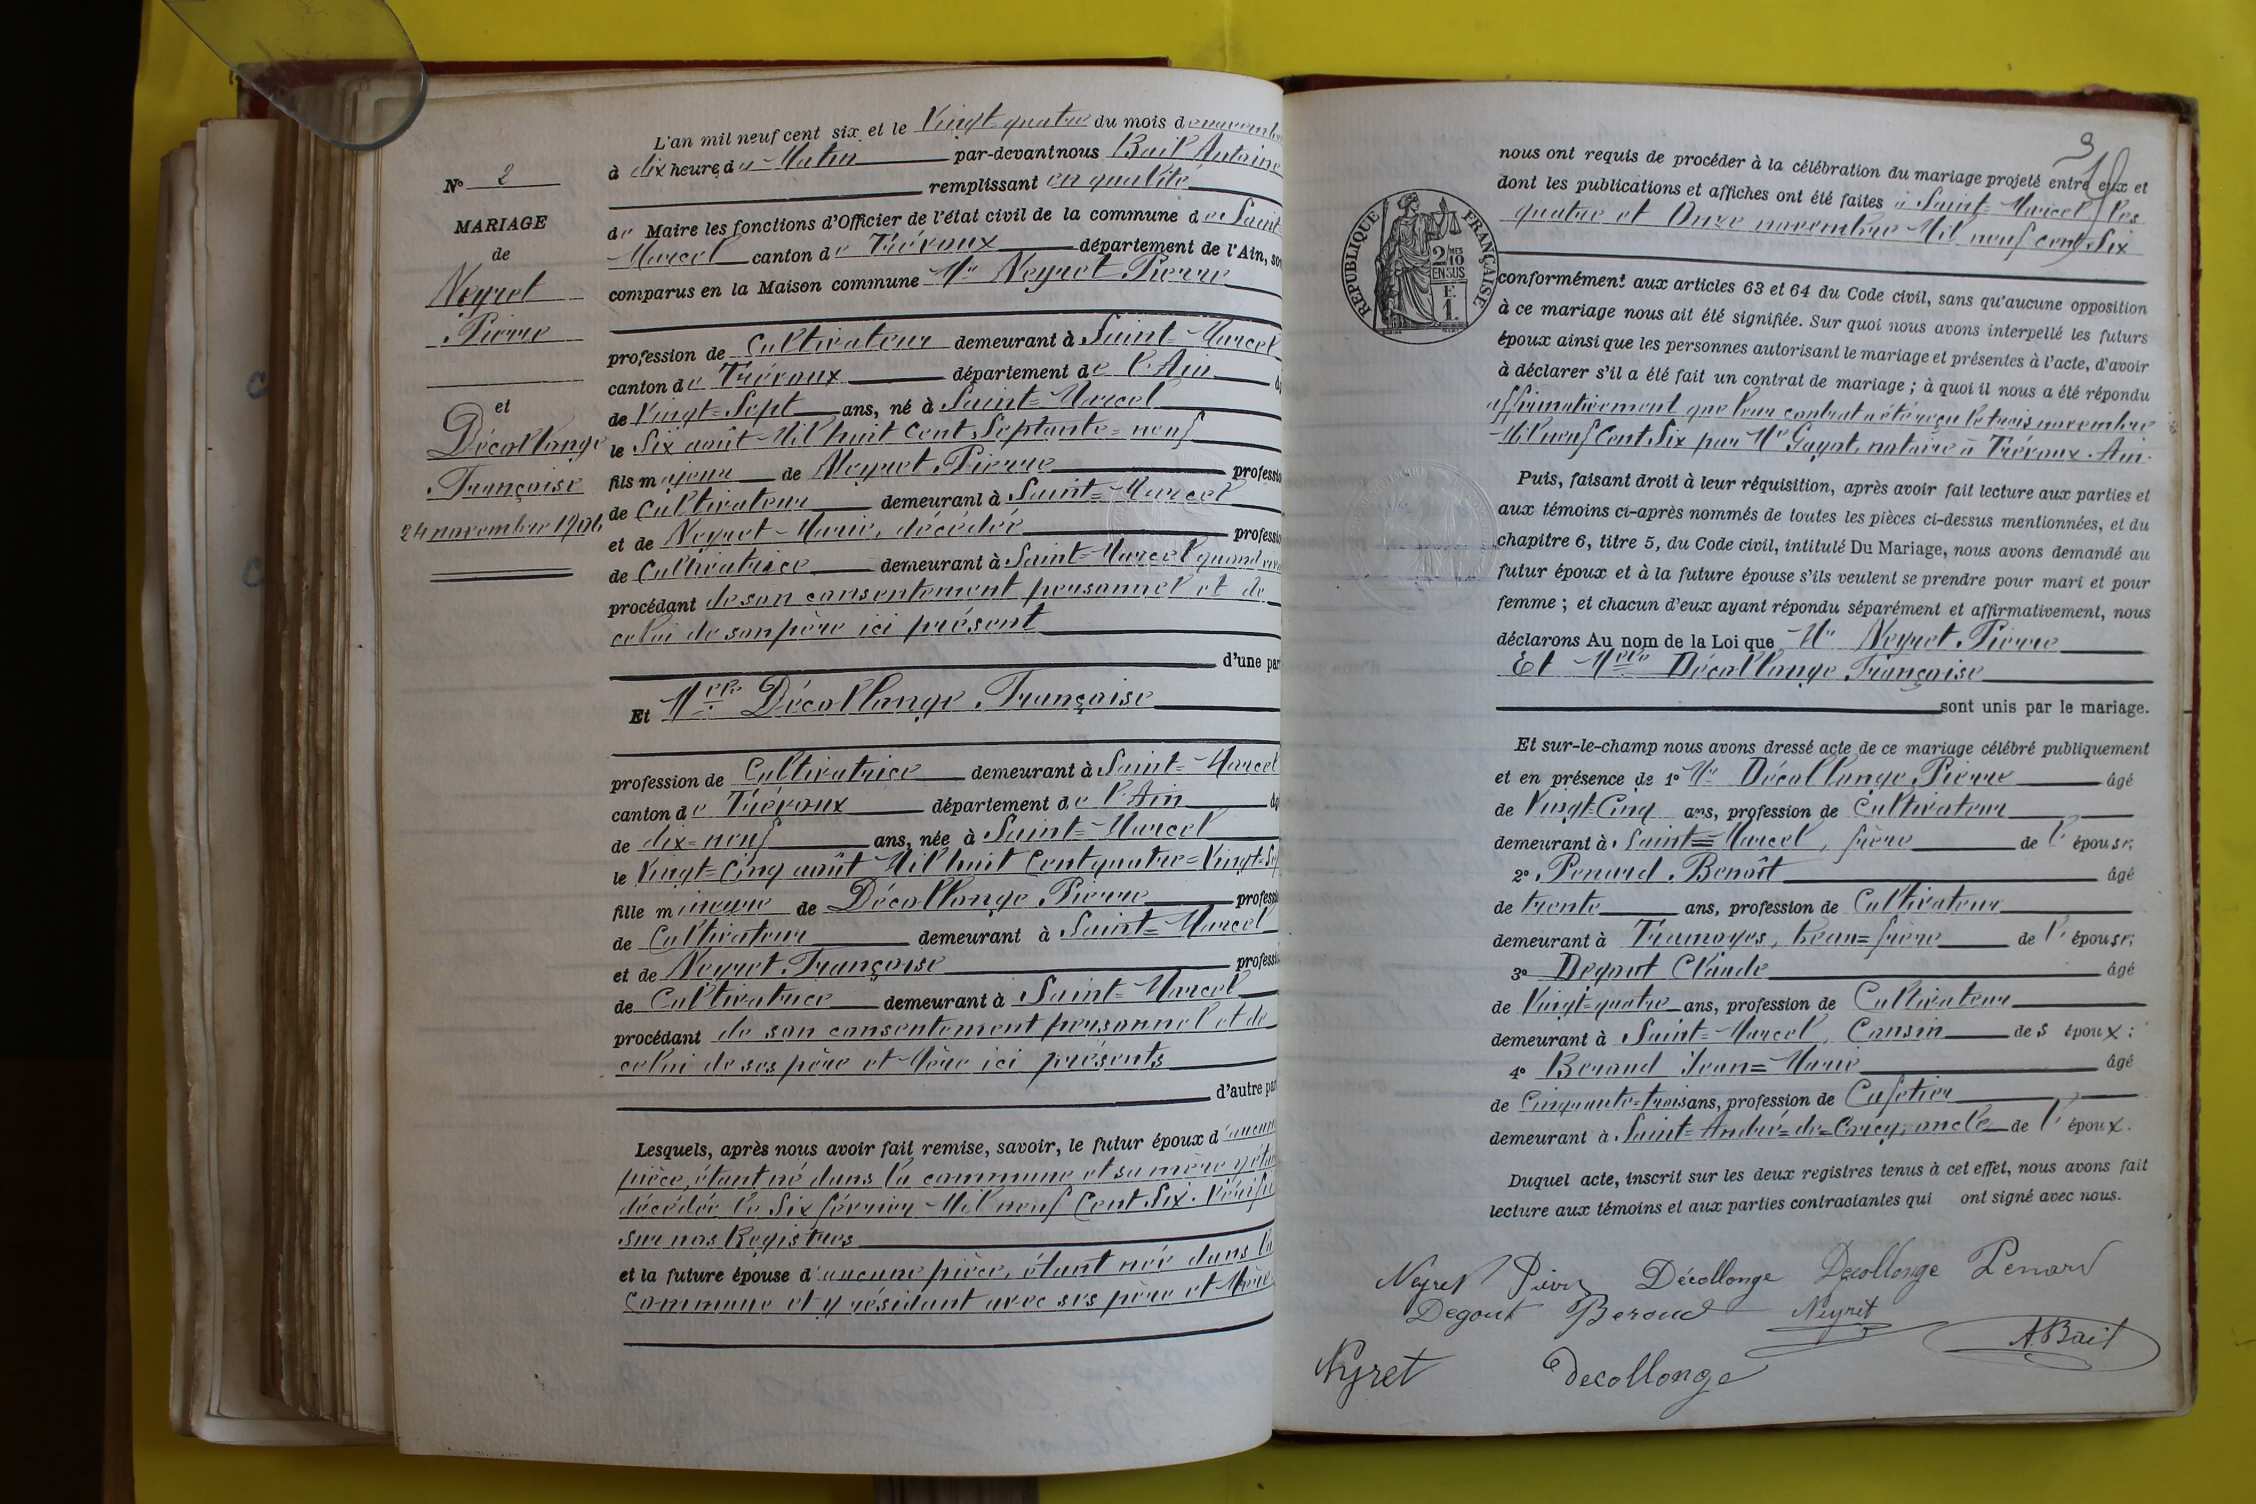 N° 2
MARIAGE
de
Neyret
Pierre
et
Décollonge
Françoise
24 novembre 1906
L'an mil neuf cent six et le Vingt quatre du mois de novembre
à dix heure du Matin par-devant nous Bail Antoine
remplissant en qualité
de Maire les fonctions d'Officier de l'état civil de la commune de Saint
Marcel canton de Trévoux département de l'Ain, son
comparus en la Maison commune Mr Neyret Pierre
profession de Cultivateur demeurant à Saint=Marcel
canton de Trévoux département de l'Ain
de Vingt=Sept ans, né à Saint=Marcel
le Six août Mil huit Cent Septante=neuf
fils majeur de Neyret Pierre professio
de Cultivateur demeurant à Saint=Marcel
et de Neyret Marie, décédée professio
de Cultivatrice demeurant à Saint=Marcel quand viv
procédant de son consentement personnel et de
celui de son père ici présent
d'une par
Et Melle Décollonge Françoise
profession de Cultivatrice demeurant à Saint=Marcel
canton de Trévoux département de l'Ain
de dix=neuf ans, née à Saint=Marcel
le Vingt=Cinq août Mil huit Cent quatre=Vingt=Sep
fille mineure de Décollonge Pierre professi
de Cultivateur demeurant à Saint=Marcel
et de Neyret Françoise professi
de Cultivatrice demeurant à Saint=Marcel
procédant de son consentement personnel et de
celui de ses père et Mère ici présents
d'autre par
Lesquels, après nous avoir fait remise, savoir, le futur époux d'aucune
pièce, étant né dans la commune et sa mère y étan
décédée le Six février Mil neuf Cent Six. Vérifié
sur nos Registres
et la future épouse d'aucune pièce, étant née dans la
Commune et y résidant avec ses père et Mère
3
nous ont requis de procéder à la célébration du mariage projeté entre eux et
dont les publications et affiches ont été faites à Saint=Marcel les
quatre et Onze novembre Mil neuf cent Six
RÉPUBLIQUE FRANÇAISE
2/10
EN SUS
F.
1.
conformément aux articles 63 et 64 du Code civil, sans qu'aucune opposition
à ce mariage nous ait été signifiée. Sur quoi nous avons interpellé les futurs
époux ainsi que les personnes autorisant le mariage et présentes à l'acte, d'avoir
à déclarer s'il a été fait un contrat de mariage ; à quoi il nous a été répondu
affirmativement que leur contrat a été reçu le trois novembre
Mil neuf Cent Six par Me Gayot, notaire à Trévoux. Ain.
Puis, faisant droit à leur réquisition, après avoir fait lecture aux parties et
aux témoins ci-après nommés de toutes les pièces ci-dessus mentionnées, et du
chapitre 6, titre 5, du Code civil, intitulé Du Mariage, nous avons demandé au
futur époux et à la future épouse s'ils veulent se prendre pour mari et pour
femme ; et chacun d'eux ayant répondu séparément et affirmativement, nous
déclarons Au nom de la Loi que Mr Neyret Pierre
Et Melle Décollonge Françoise
sont unis par le mariage.
Et sur-le-champ nous avons dressé acte de ce mariage célébré publiquement
et en présence de 1° Mr Décollonge Pierre âgé
de Vingt=Cinq ans, profession de Cultivateur
demeurant à Saint=Marcel, frère de l'épouse;
2° Penard Benoît âgé
de trente ans, profession de Cultivateur
demeurant à Tramoyes, beau=frère de l'épouse;
3° Degout Claude âgé
de Vingt=quatre ans, profession de Cultivateur
demeurant à Saint=Marcel, Cousin des époux;
4° Beroud Jean=Marie âgé
de Cinquante=trois ans, profession de Cafetier
demeurant à Saint=André=de=Corcy, oncle de l'époux.
Duquel acte, inscrit sur les deux registres tenus à cet effet, nous avons fait
lecture aux témoins et aux parties contractantes qui ont signé avec nous.
Neyret Pierre Décollonge Decollonge Penard
Degout Beroud Neyret A. Bail
Neyret Decollonge